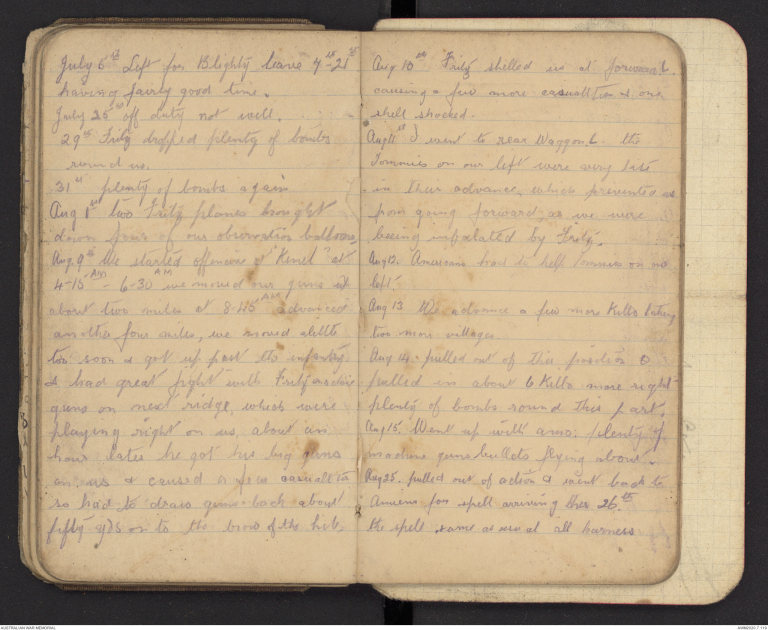 July 6th Left for Blighty leave 7th-21st
having fairly good time.
July 25th off duty not well.
29th Fritz dropped plenty of bombs
round us.
31st plenty of bombs again
Aug 1st two Fritz planes brought
down four of our observation balloons,
Aug. 9th We started offensive at "Kemel" at
4-15 AM - 6-30 AM we moved our guns up
about two miles at 8-45 AM advanced
another four miles, we moved alittle
too soon & got up past the infantry
& had great fight with Fritz machine
guns on next ridge, which were
playing right on us, about an
hour later he got his big guns
on us & caused a few casualties
so had to draw guns back about
fifty yds on to the brow of the hill,
Aug 10th Fritz shelled us at forward L.
causing a few more casualties & one
shell shocked.
Aug 11st I went to rear Waggon L. the
Tommies on our left were very late
in their advance, which prevented us
from going forward, as we were
being infalated by Fritz.
Aug 12. Americans had to help Tommies on our
left.
Aug 13 We advance a few more Kilts taking
two more villages.
Aug 14. pulled out of this position &
pulled in about 6 Kilo more right
plenty of bombs round this part.
Aug 15. Went up with amo. plenty of
machine guns bullets flying about.
Aug 25. pulled out of action & went back to
Amiens for spell arriving there 26.th
the spell same as usual all harness
AUSTRALIAN WAR MEMORIAL